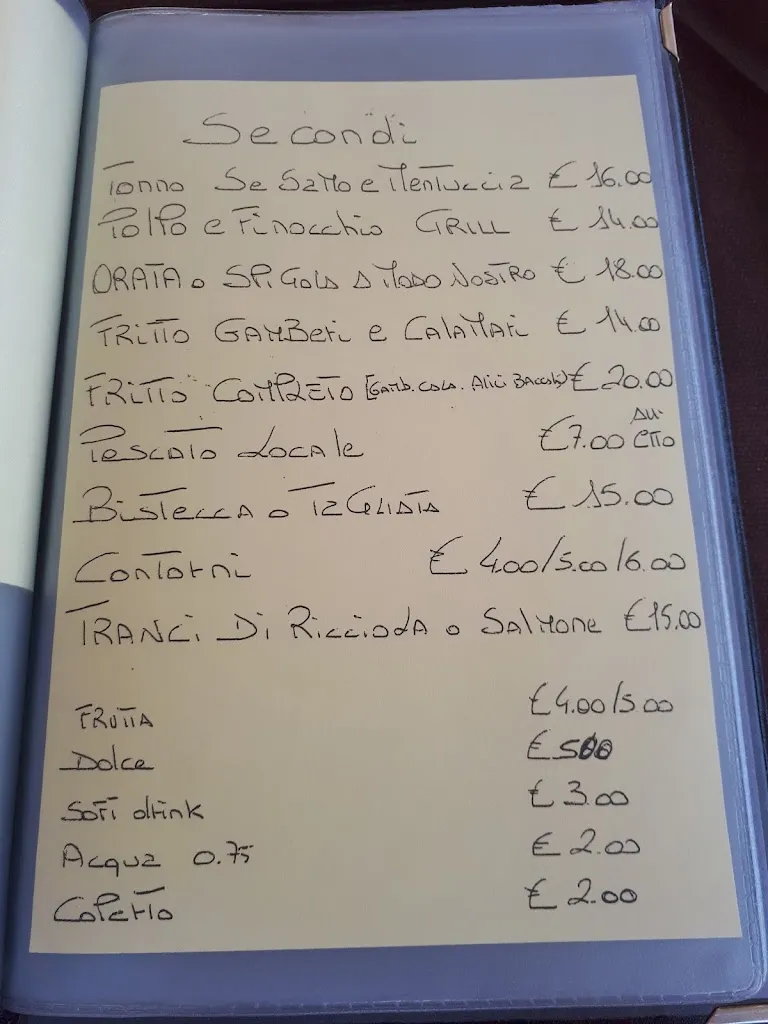 Secondi
Tonno Sesamo e Mentuccia € 16.00
Polpo e Finocchio GRILL € 14.00
ORATA o SPiGola A Modo Nostro € 18.00
FRitto GAMBeri e CALAMARi € 14.00
FRitto COMPLETO [Gamb. Cala. Alici Baccalà) € 20.00
Pescato Locale € 7.00 All' etto
Bistecca o TaGliata € 15.00
Contorni € 4.00/5.00/6.00
TRANCi Di Ricciola o SAlMone € 15.00
FRUTTA € 4.00/5.00
Dolce € 500
Soft drink € 3.00
Acqua 0.75 € 2.00
Coperto € 2.00